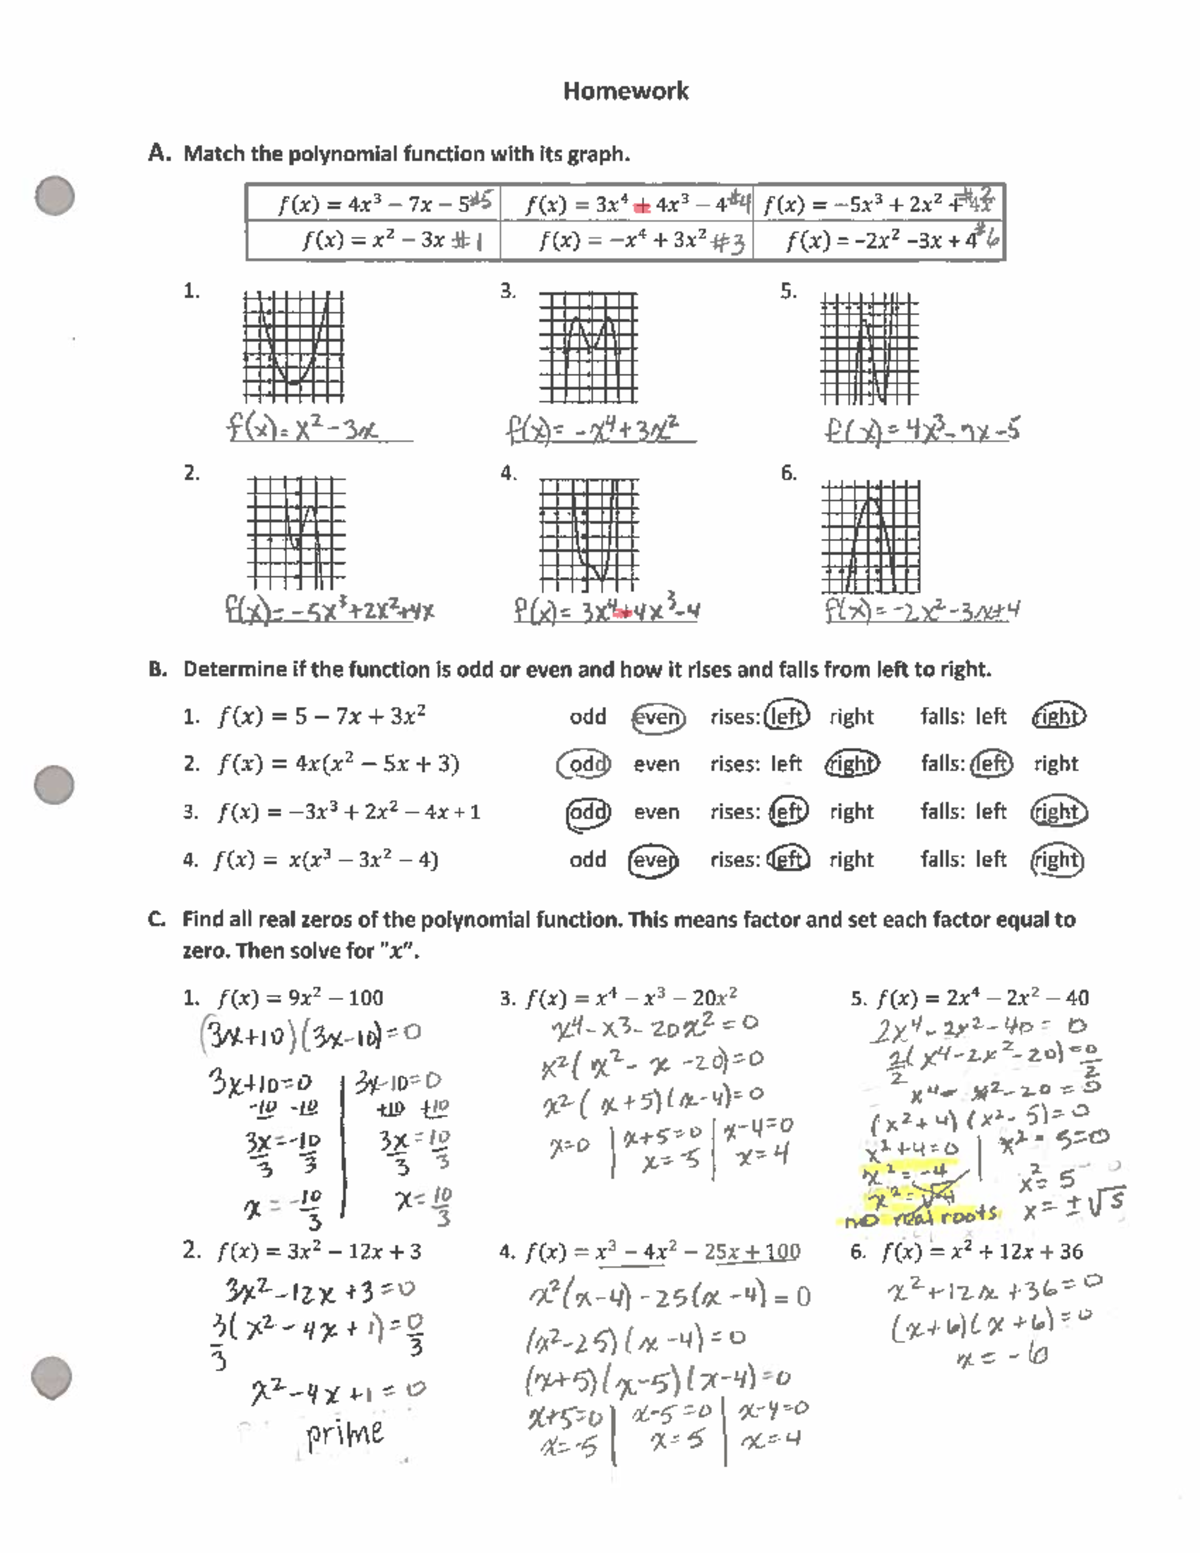 Homework
A. Match the polynomial function with its graph.
f(x) = 4x³ − 7x − 5 #5 f(x) = 3x⁴ + 4x³ − 4 #4 f(x) = −5x³ + 2x² + 4x #2
f(x) = x² − 3x #1 f(x) = −x⁴ + 3x² #3 f(x) = −2x² −3x + 4 #6
1. 3. 5.
f(x) = x² − 3x f(x) = −x⁴ + 3x² f(x) = 4x³ − 7x − 5
2. 4. 6.
f(x) = −5x³ + 2x² + 4x f(x) = 3x⁴ + 4x³ − 4 f(x) = −2x² − 3x + 4
B. Determine if the function is odd or even and how it rises and falls from left to right.
1. f(x) = 5 − 7x + 3x² odd even rises: left right falls: left right
2. f(x) = 4x(x² − 5x + 3) odd even rises: left right falls: left right
3. f(x) = −3x³ + 2x² − 4x + 1 odd even rises: left right falls: left right
4. f(x) = x(x³ − 3x² − 4) odd even rises: left right falls: left right
C. Find all real zeros of the polynomial function. This means factor and set each factor equal to
zero. Then solve for "x".
1. f(x) = 9x² − 100
(3x+10)(3x−10)=0
3x+10=0 3x−10=0
−10 −10 +10 +10
3x=−10 3x=10
3 3 3 3
x = −10/3 x = 10/3
3. f(x) = x⁴ − x³ − 20x²
x⁴ − x³ − 20x² = 0
x²(x² − x − 20)=0
x²(x+5)(x−4)=0
x=0 x+5=0 x−4=0
x=−5 x=4
5. f(x) = 2x⁴ − 2x² − 40
2x⁴ − 2x² − 40 = 0
2(x⁴−2x²−20)=0
2 2
x⁴ − x² − 20 = 0
(x²+4)(x²−5)=0
x²+4=0 x²−5=0
x²=−4 x²=5
x²=√−4 x=±√5
no real roots
2. f(x) = 3x² − 12x + 3
3x²−12x+3=0
3(x²−4x+1)=0
3 3
x²−4x+1=0
prime
4. f(x) = x³ − 4x² − 25x + 100
x²(x−4)−25(x−4)=0
(x²−25)(x−4)=0
(x+5)(x−5)(x−4)=0
x+5=0 x−5=0 x−4=0
x=−5 x=5 x=4
6. f(x) = x² + 12x + 36
x²+12x+36=0
(x+6)(x+6)=0
x=−6